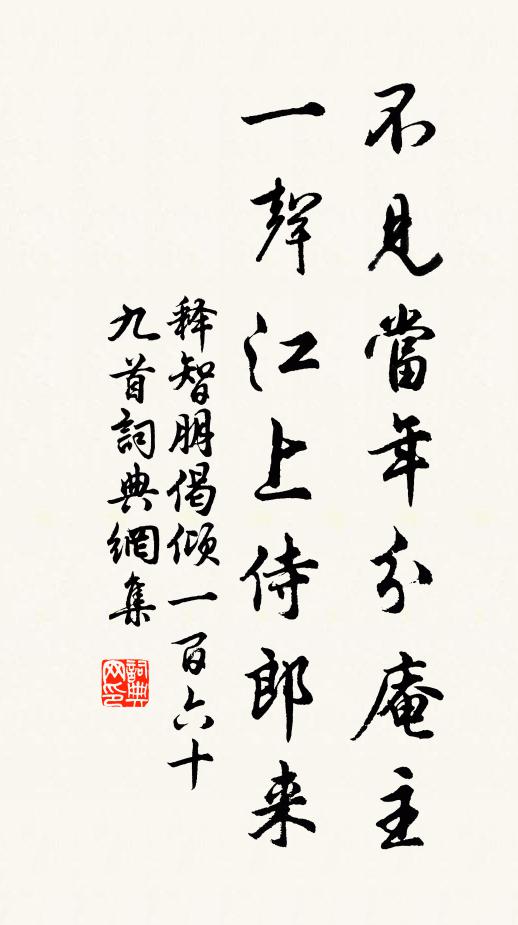 不見當年分庵主
一聲江上侍郎来
释智朋偈傾一百六十
九首詞典網集
詞典网印